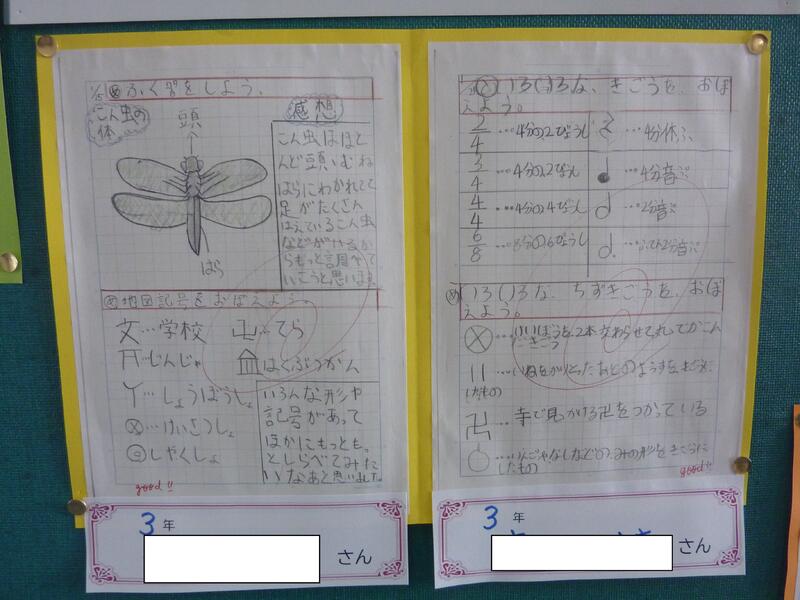 1/15 め ふく習をしよう。
こん虫の体
頭
はら
感想
こん虫はほと
んど頭、むね
はらにわかれてて
足がたくさん
はえているこん虫
などが
らもっと調べて
いこうと思います。
め 地図記号をおぼえよう。
文…学校
卍…てら
⛩…じんじゃ
はくぶつかん
Y…しょうぼうしょ
⊗…けいさつしょ
◎しやくしょ
いろんな形や
記号があって
ほかにもっと
しらべてみた
いなあと思いました。
good!!
3年
さん
め いろいろな、きごうを、おぼ
えよう。
2/4…4分の2びょうし
3/4…4分の
4/4…4分の4びょうし
6/8…8分の6びょうし
…4分休ぷ
…4分音ぷ
…2分音ぷ
…ふてん2分音ぷ
め いろいろな、ちずきごうを、おぼ
えよう。
⊗…けいぼうを2本交わらせて
…いねをかりとったあとのようすを
したもの
卍…寺で見かける卍をつかっている
…りんごやなしなどのみの形をきごうに
したもの
good!!
3年
さん